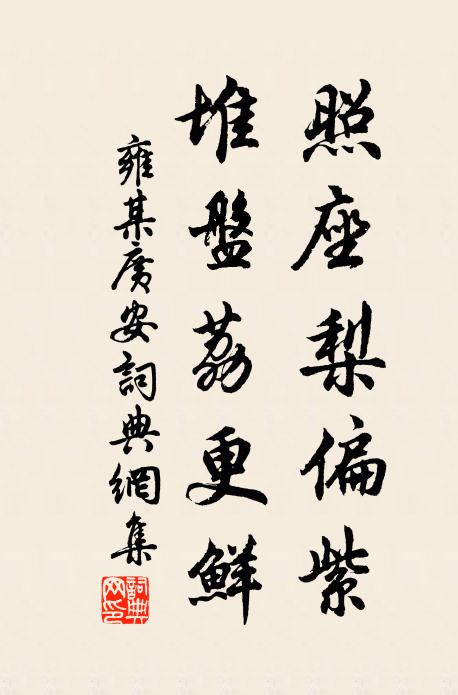 照座梨偏紫
堆盤荔更鮮
雍某廣安詞典網集
詞典網印